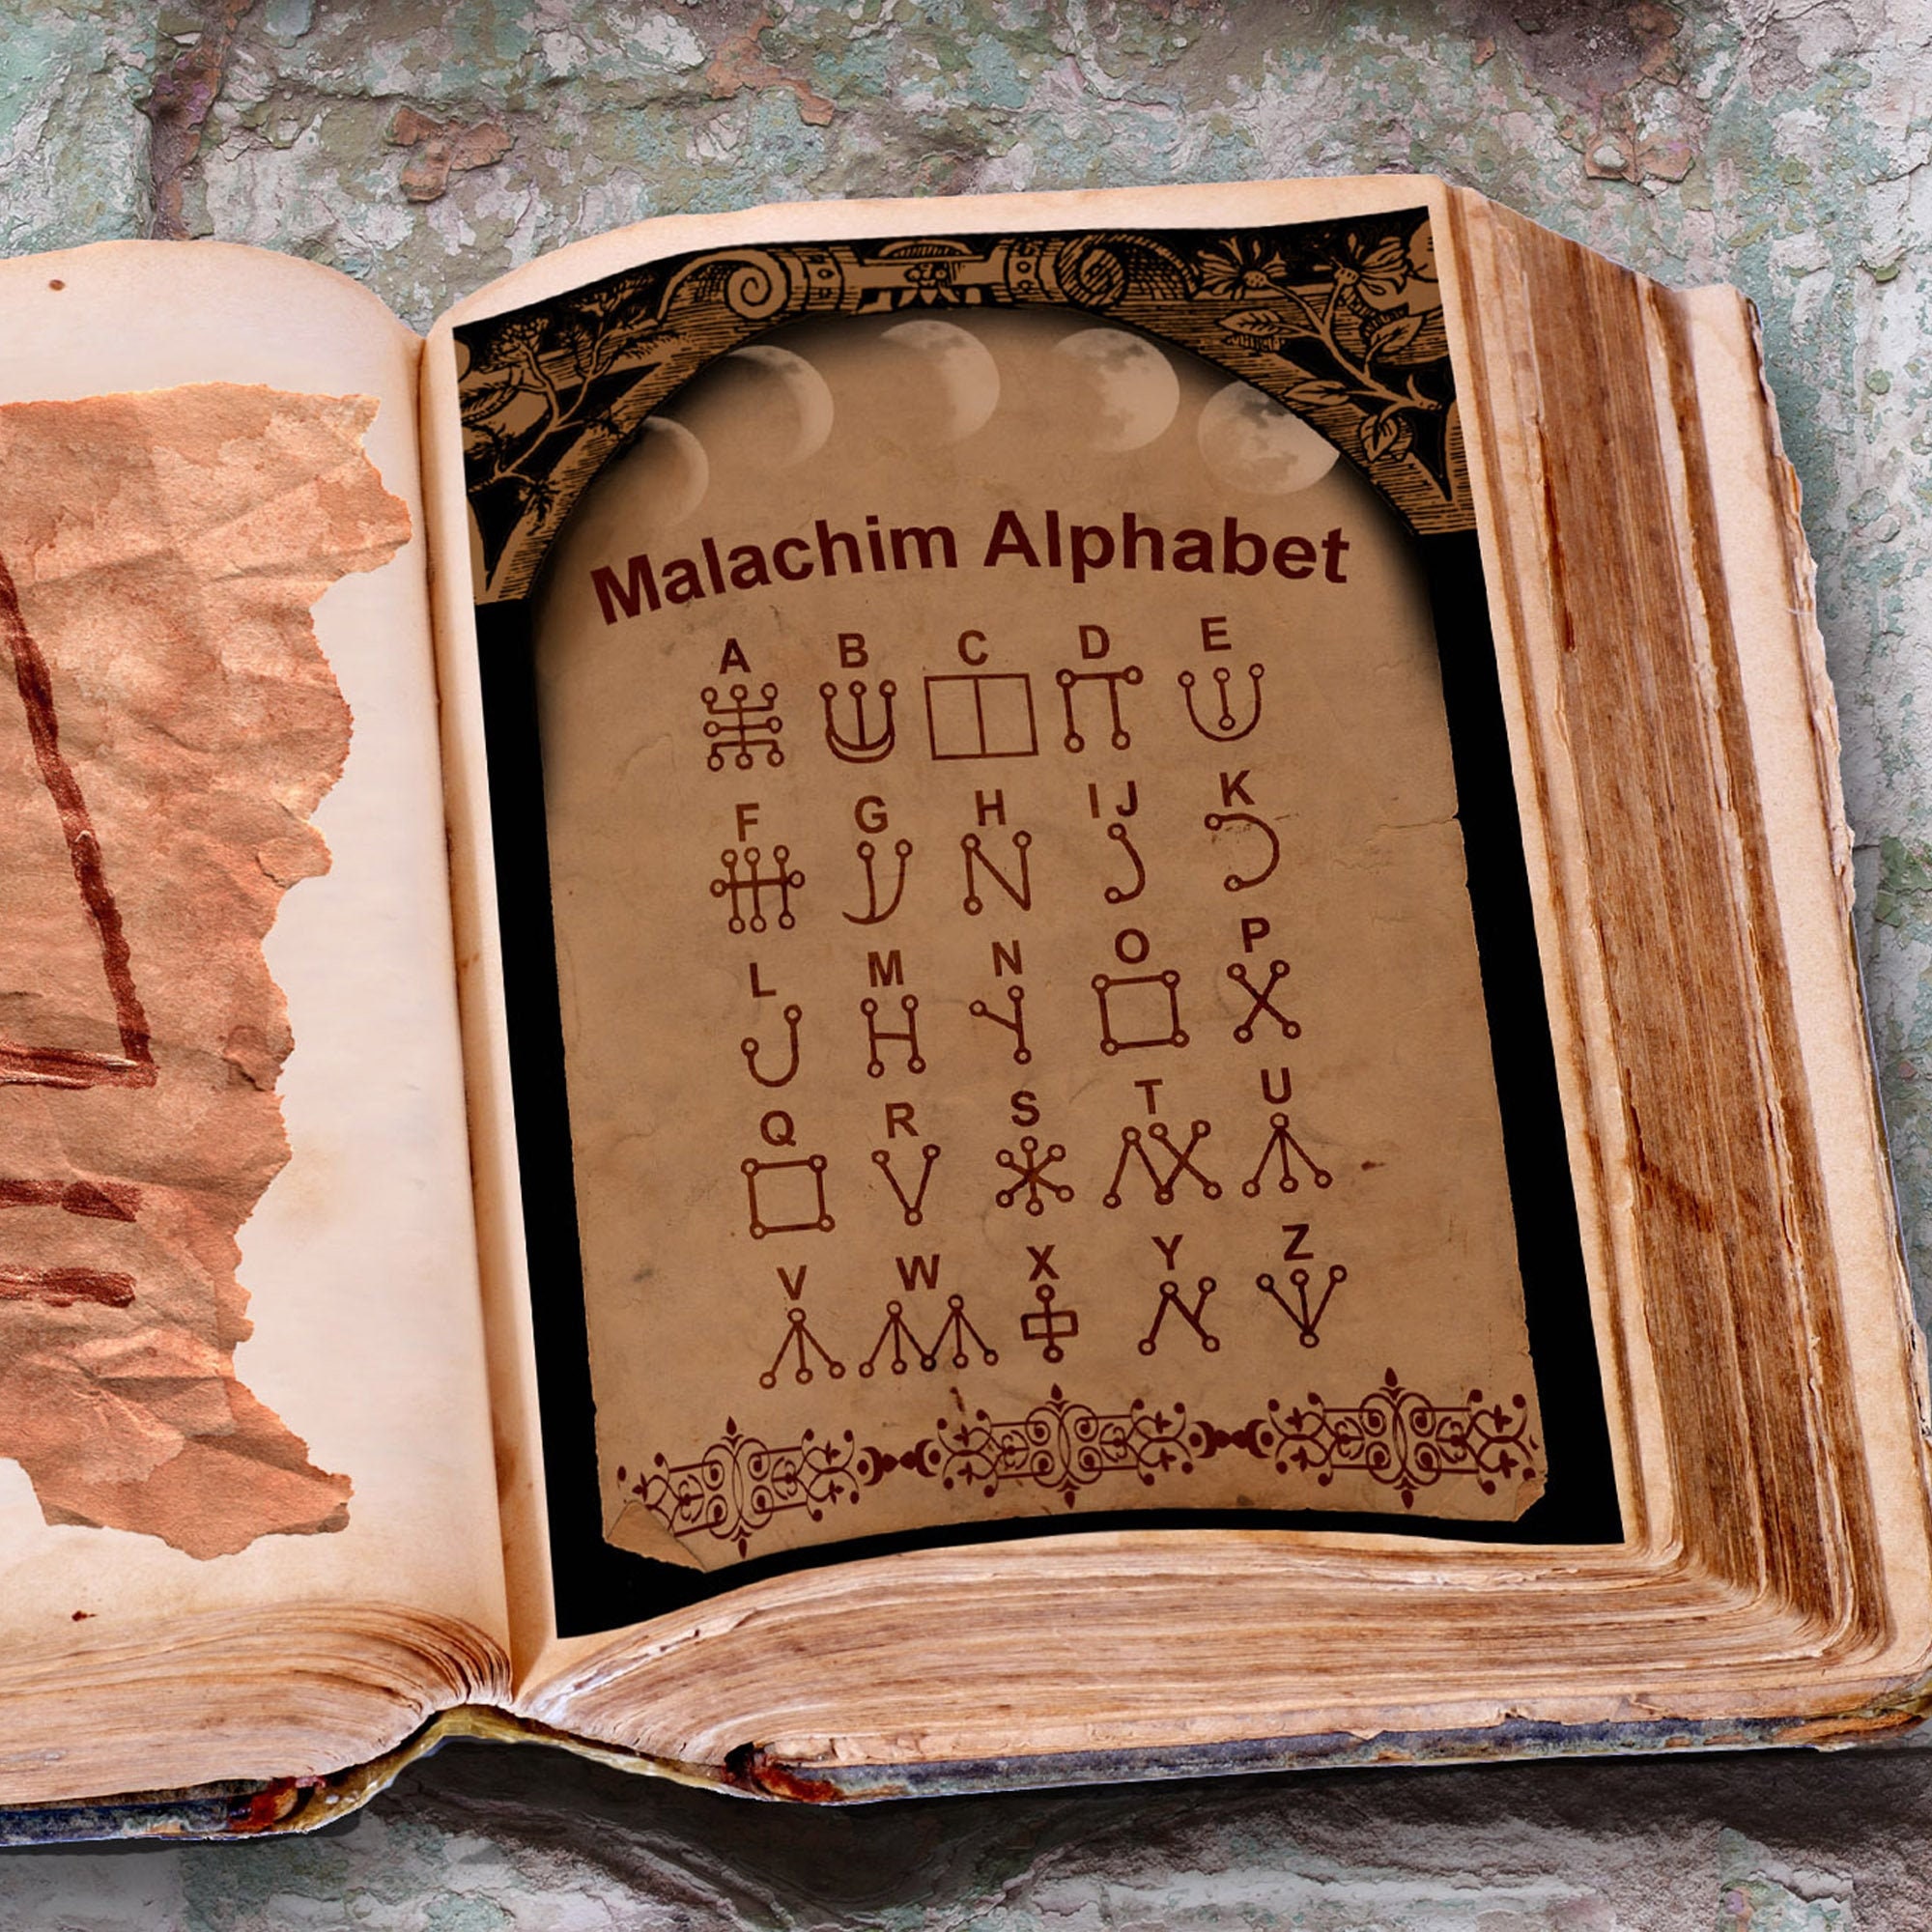 Malachim Alphabet
A B C D E
F G H IJ K
L M N O P
Q R S T U
V W X Y Z